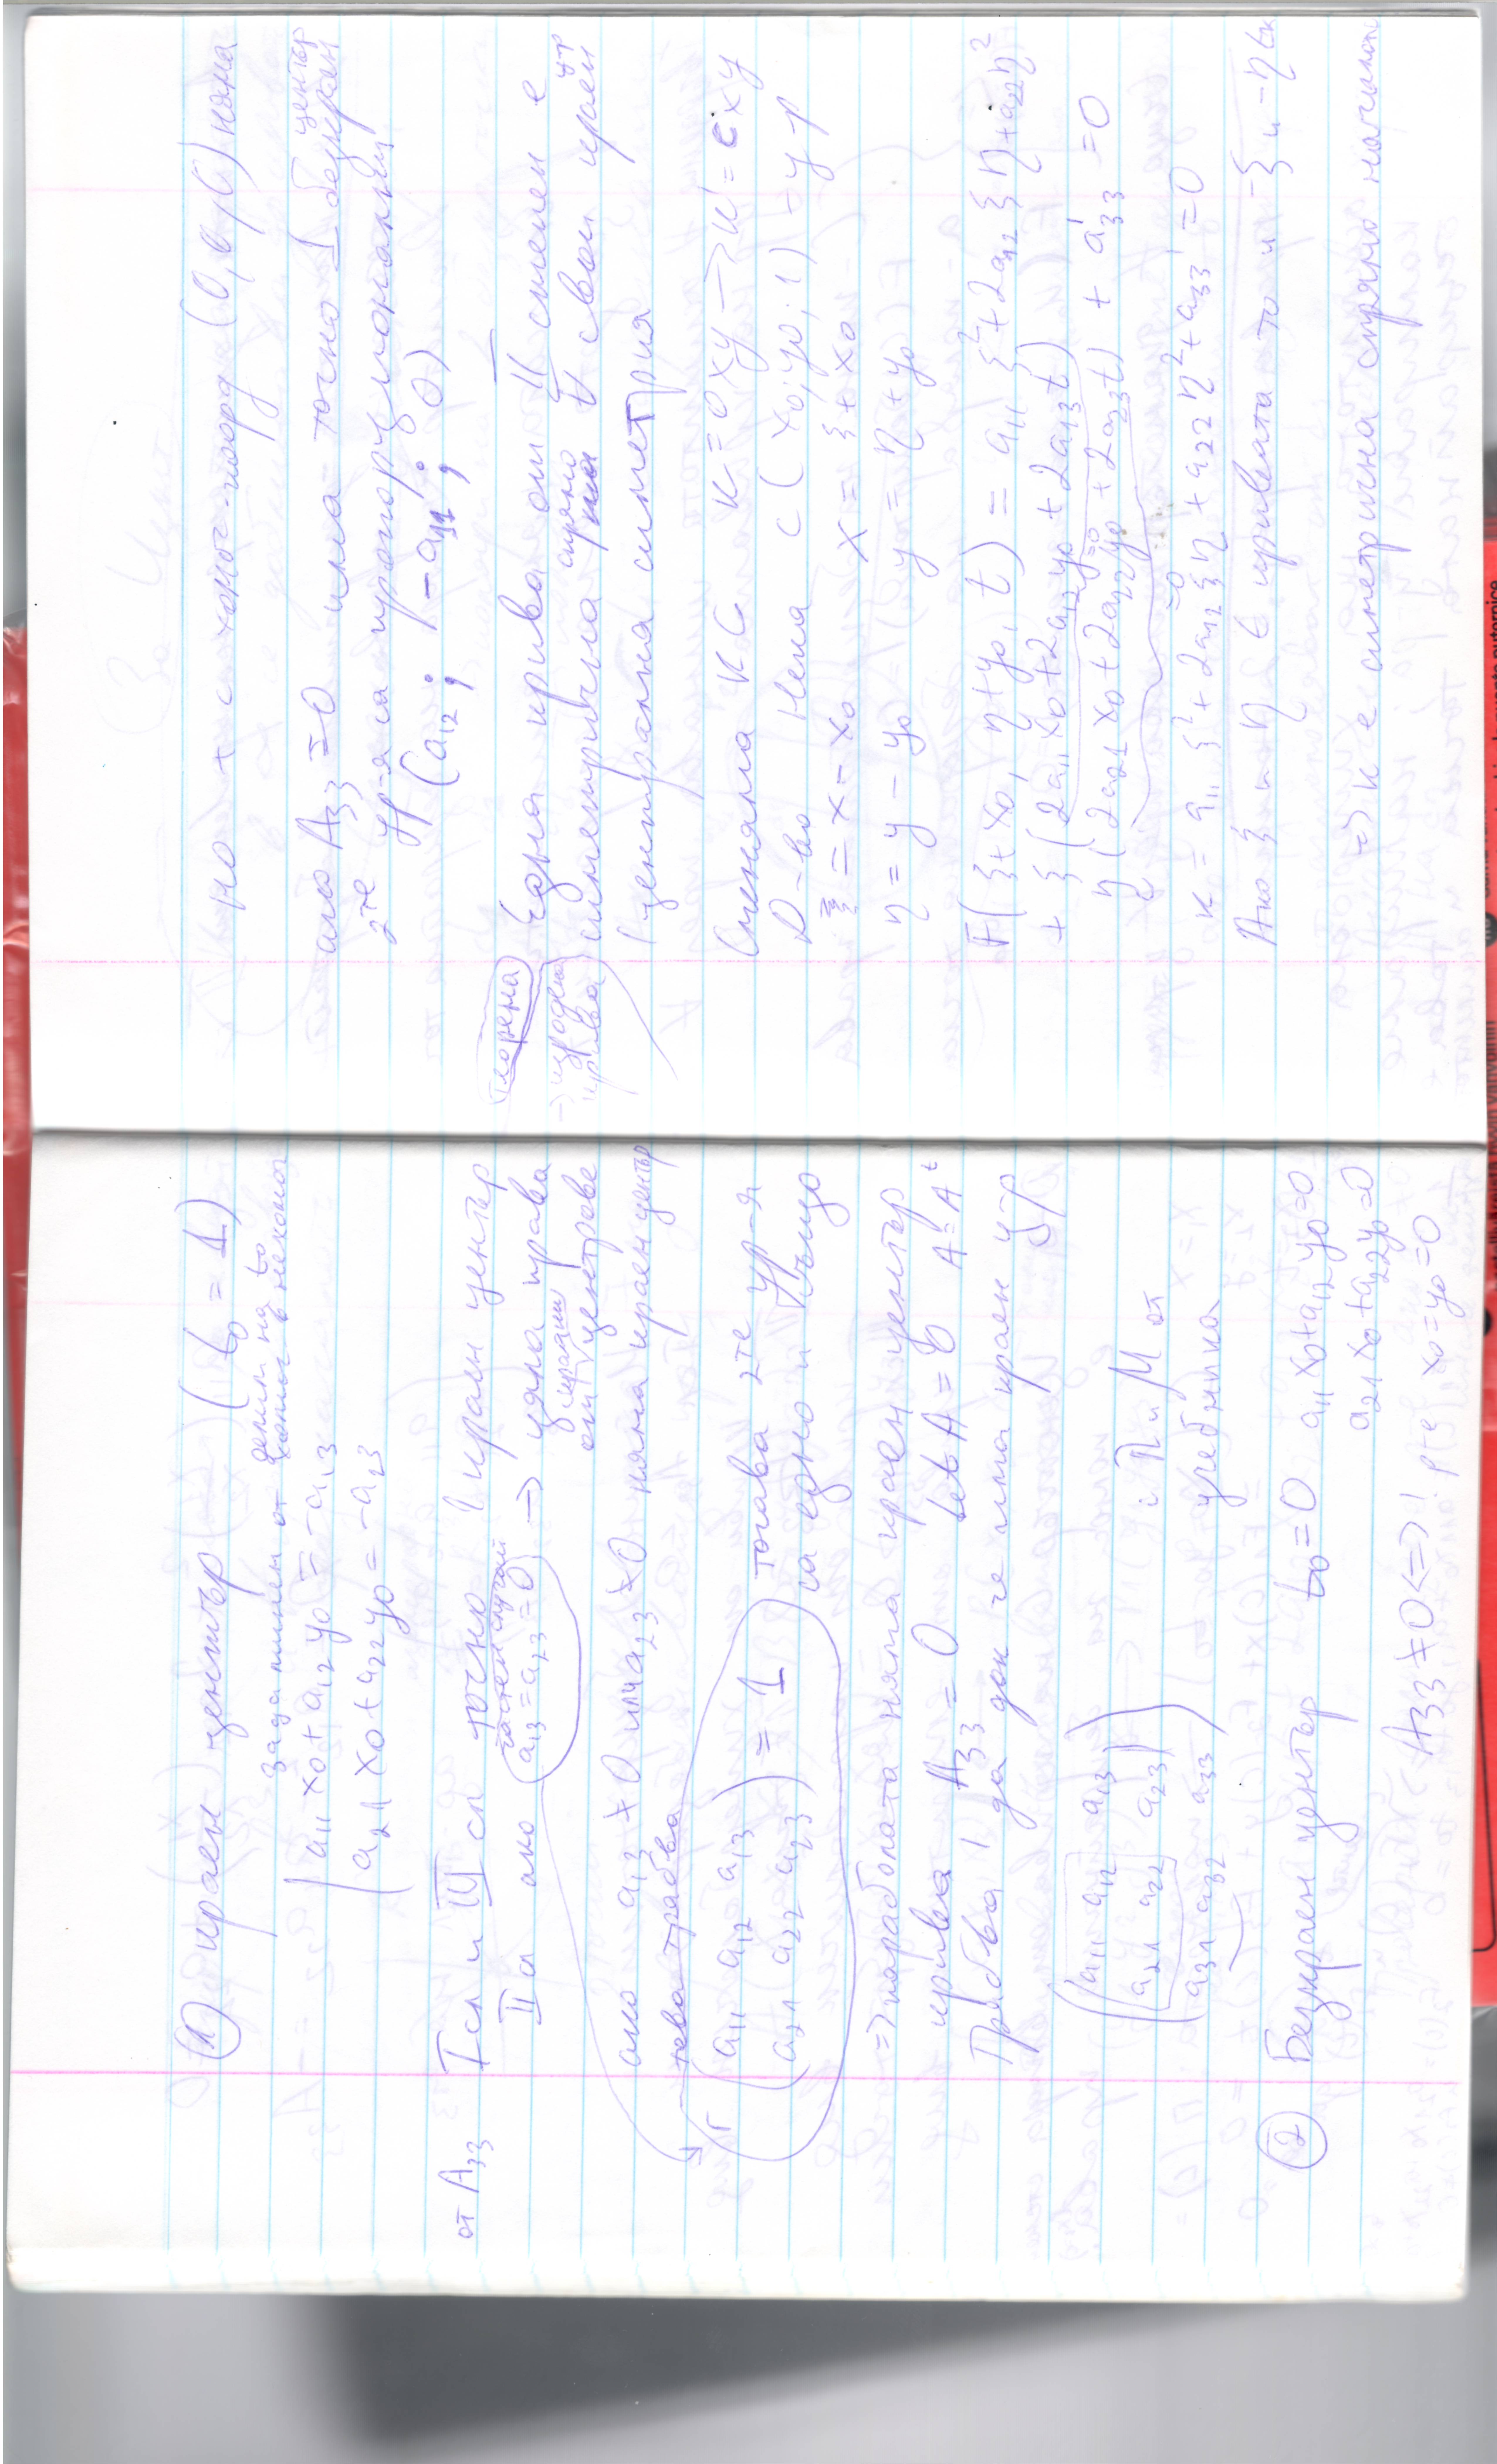 ① краен център (t₀ = 1)
за да минем от делим на t₀
хомог. в нехомог
a₁₁x₀ + a₁₂y₀ = -a₁₃
a₂₁x₀ + a₂₂y₀ = -a₂₃
от A₃₃ I сл и III сл точно 1 краен център
частен случай
II а ако (a₁₃ = a₂₃ = 0) → цяла права
от крайни центрове
ако a₁₃ ≠ 0 или a₂₃ ≠ 0 няма краен център
това трябва
r (a₁₁ a₁₂ a₁₃
a₂₁ a₂₂ a₂₃) = 1 тогава 2те ур-я
са едно и също
=> параболата няма краен център
крива A₃₃ = 0 det A = 0 A = Aᵗ
Трябва да док че има краен ц-р
(a₁₁ a₁₂ a₁₃
a₂₁ a₂₂ a₂₃
a₃₁ a₃₂ a₃₃)
П и М от
учебника
② Безкраен център t₀ = 0 a₁₁x₀ + a₁₂y₀ = 0
a₂₁x₀ + a₂₂y₀ = 0
A₃₃ ≠ 0 <=> ! x₀ = y₀ = 0
но т с хомог. коорд (0,0,0) няма
ако A₃₃ = 0 има точно 1 безкраен център
2те ур-я са пропорционални
(a₁₂; -a₁₁; 0)
Теорема Една крива от II степен е
→ изродена крива
симетрична спрямо ∀ свой краен ц-р
(централна симетрия
Сменяме КС K = Oxy → K' = Cxy
D-во Нека C(x₀; y₀; 1) - ц-р
ξ = x - x₀ x = ξ + x₀
η = y - y₀ y = η + y₀
F(ξ + x₀, η + y₀, t) = a₁₁ξ² + 2a₁₂ξη + a₂₂η²
+ ξ(2a₁₁x₀ + 2a₁₂y₀ + 2a₁₃t) =0
η(2a₂₁x₀ + 2a₂₂y₀ + 2a₂₃t) + a'₃₃ = 0
=0
к = a₁₁ξ² + 2a₁₂ξη + a₂₂η² + a₃₃' = 0
Ако ξ и η ∈ кривата то и -ξ и -η ∈ к
=> к е симетрична спрямо началото